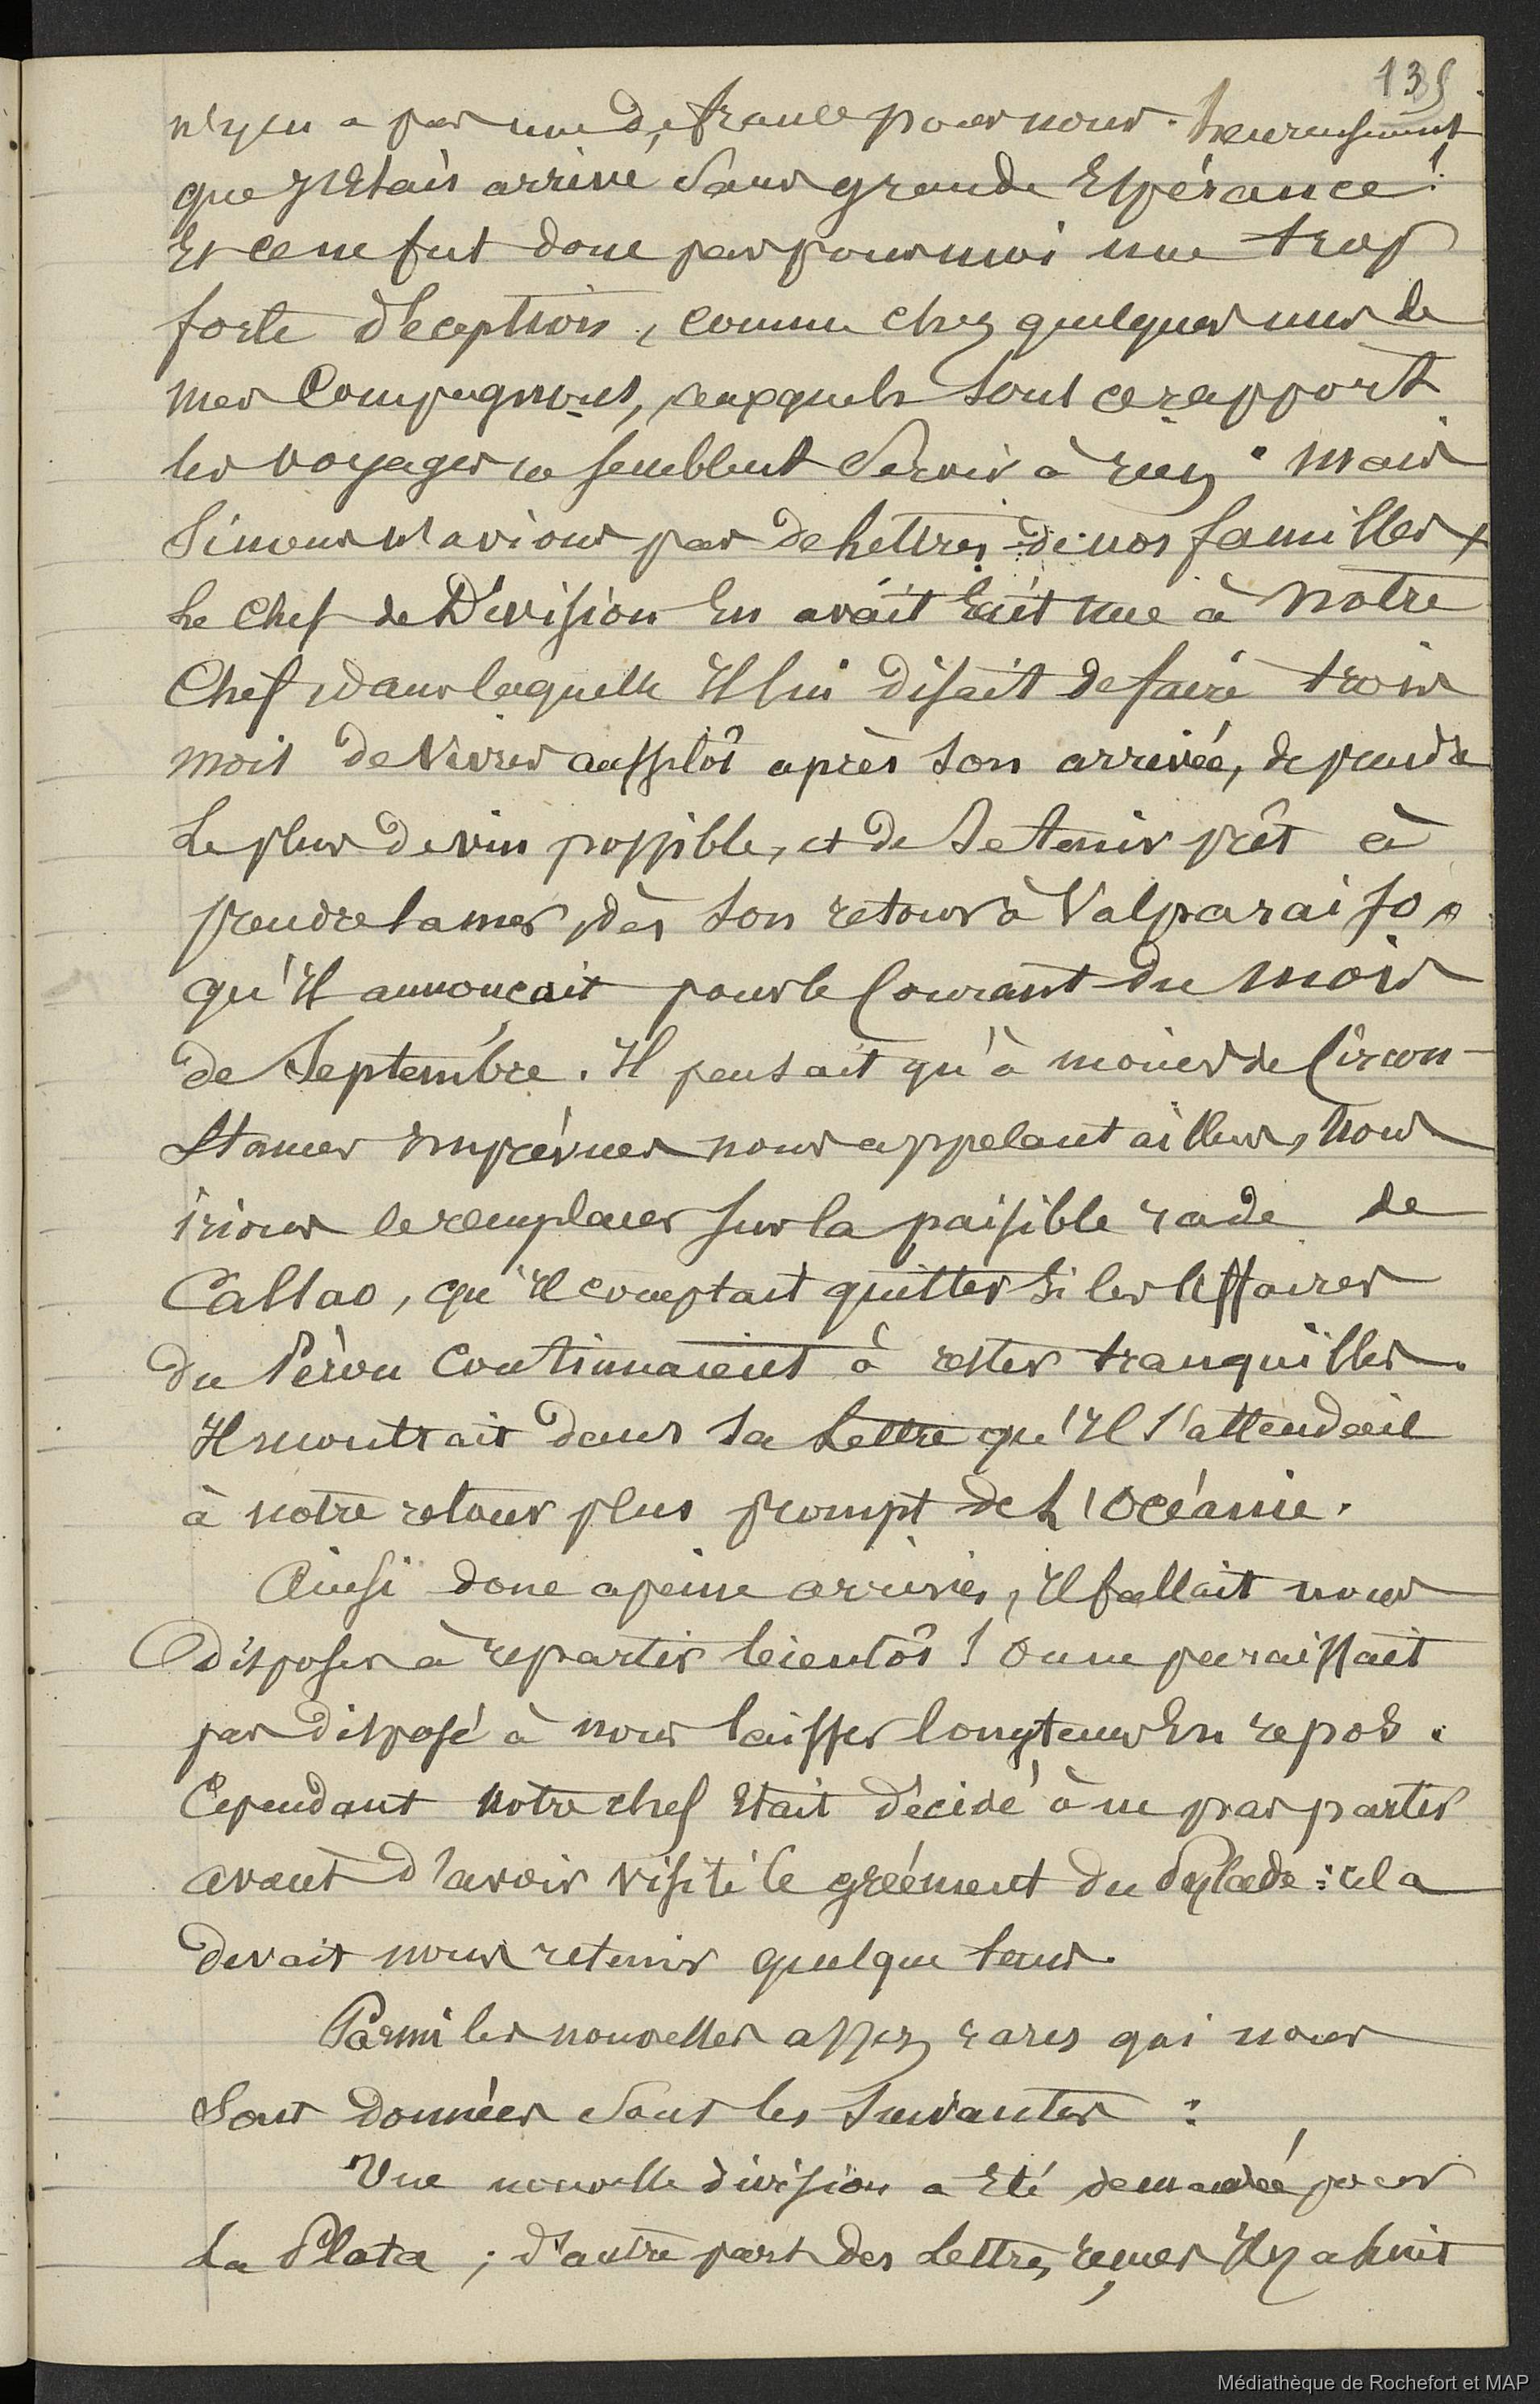 135
n'y en a pas une de france pour nous. heureusement
que j'étais arrivé sans grande Espérance!
Et ce ne fut donc pas pour moi une trop
forte déception, comme chez quelques uns de
mes Compagnons, auxquels sous ce rapport
les voyages ne semblent servir à rien. Mais
Si nous n'avions pas de Lettres de nos familles,
Le Chef de Division En avait Ecrit une à Notre
Chef, dans laquelle Il lui disait de faire trois
mois de Vivres aussitôt après son arrivée, de prendre
Le plus de vin possible, et de Se tenir prêt à
prendre la mer, dès son retour à Valparaiso,
qu'Il annonçait pour le Courant du Mois
de Septembre. Il pensait qu'à moins de Circon-
stances Imprévues nous appelant ailleurs, Nous
irions le remplacer sur la paisible rade de
Callao, qu'Il comptait quitter Si les Affaires
du Pérou Continuaient à rester tranquilles.
Il montrait dans Sa Lettre qu'Il s'attendait
à notre retour plus prompt de L'Océanie.
Ainsi donc à peine arrivés, Il fallait nous
disposer à repartir bientôt! On ne paraissait
pas disposé à nous laisser longtems En repos.
Cependant Notre chef Etait décidé à ne pas partir
avant d'avoir visité le gréement du Pylade: cela
devait nous retenir quelque tems.
Parmi les nouvelles assez rares qui nous
Sont données Sont les Suivantes:
Une nouvelle division a Eté demandée pour
La Plata; d'autre part des Lettres reçues Il y a huit
Médiathèque de Rochefort et MAP